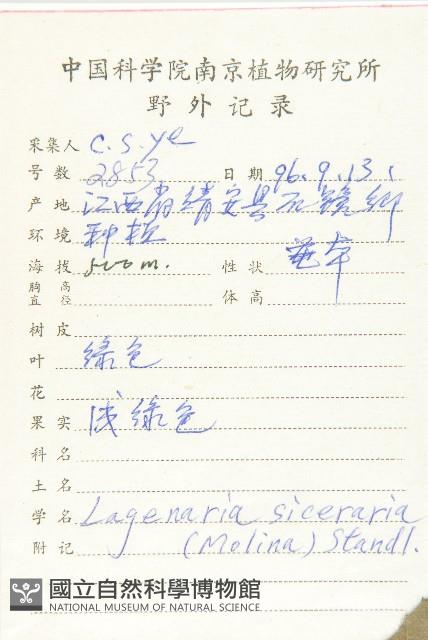 中国科学院南京植物研究所
野外记录
采集人 C.S.Ye
号数 2853 日期 96.9.13.
产地 江西省靖安县石镜鄉
环境 种植
海拔 500 m. 性状 草本
胸高直径 体高
树皮
叶 绿色
花
果实 浅绿色
科名
土名
学名 Lagenaria siceraria
附记 (Molina) Standl.
國立自然科學博物館
NATIONAL MUSEUM OF NATURAL SCIENCE